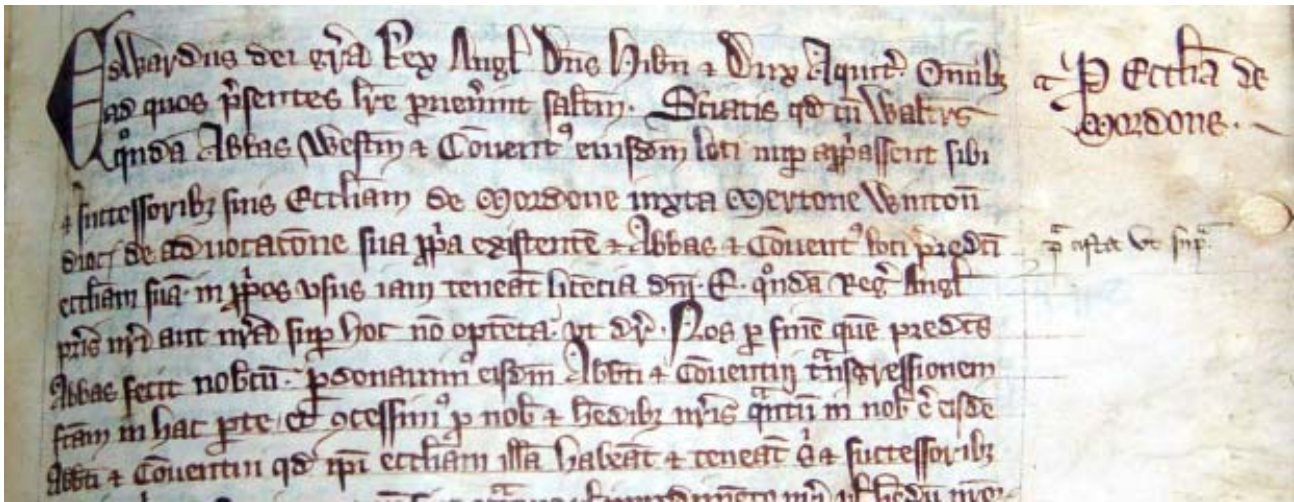 Edwardus dei gr̄a Rex Angl Dn̄s Hib̄n ⁊ Dux Aquit̄. Om̄ibȝ
ad quos p̄sentes lr̄e peruen̄int sal̄tm. Sciatis qd cū Waltr̄s
qͦndā Abbas Westm̄ ⁊ Cōuentꝰ eiusdm̄ loci nuꝑ app̄assent sibi
⁊ successoribȝ suis Eccl̄iam de Mordone iuxta Mertone Wyntōn
dioc̄ de aduocatōne sua ꝓp̄a existentē ⁊ Abbas ⁊ Cōuentꝰ loci p̄edc̄i
eccl̄iam suā in ꝓp̄os vsus iam teneāt licēcia dn̄i .E. qͦndā Reḡ Angl
pr̄is nr̄i aut nr̄a suꝑ hoc nō optēta. vt dr̄. Nos ꝑ finē quē predc̄s
Abbas fecit nobcū. ꝑdonauimꝰ eisdm̄ Abb̄ti ⁊ Cōuentui tᵃnsgressionem
fc̄am in hac ꝑte / et ꝯcessimꝰ ꝓ nob̄ ⁊ h̄edibȝ nr̄is qᵃntū in nob̄ ē eisdē
Abb̄ti ⁊ Cōuentui qd ip̄i eccl̄iam ill̄a habeāt ⁊ teneāt s̄ ⁊ successoribȝ
ꝓ Eccl̄ia de
Mordone.
cista vt supᵃ.